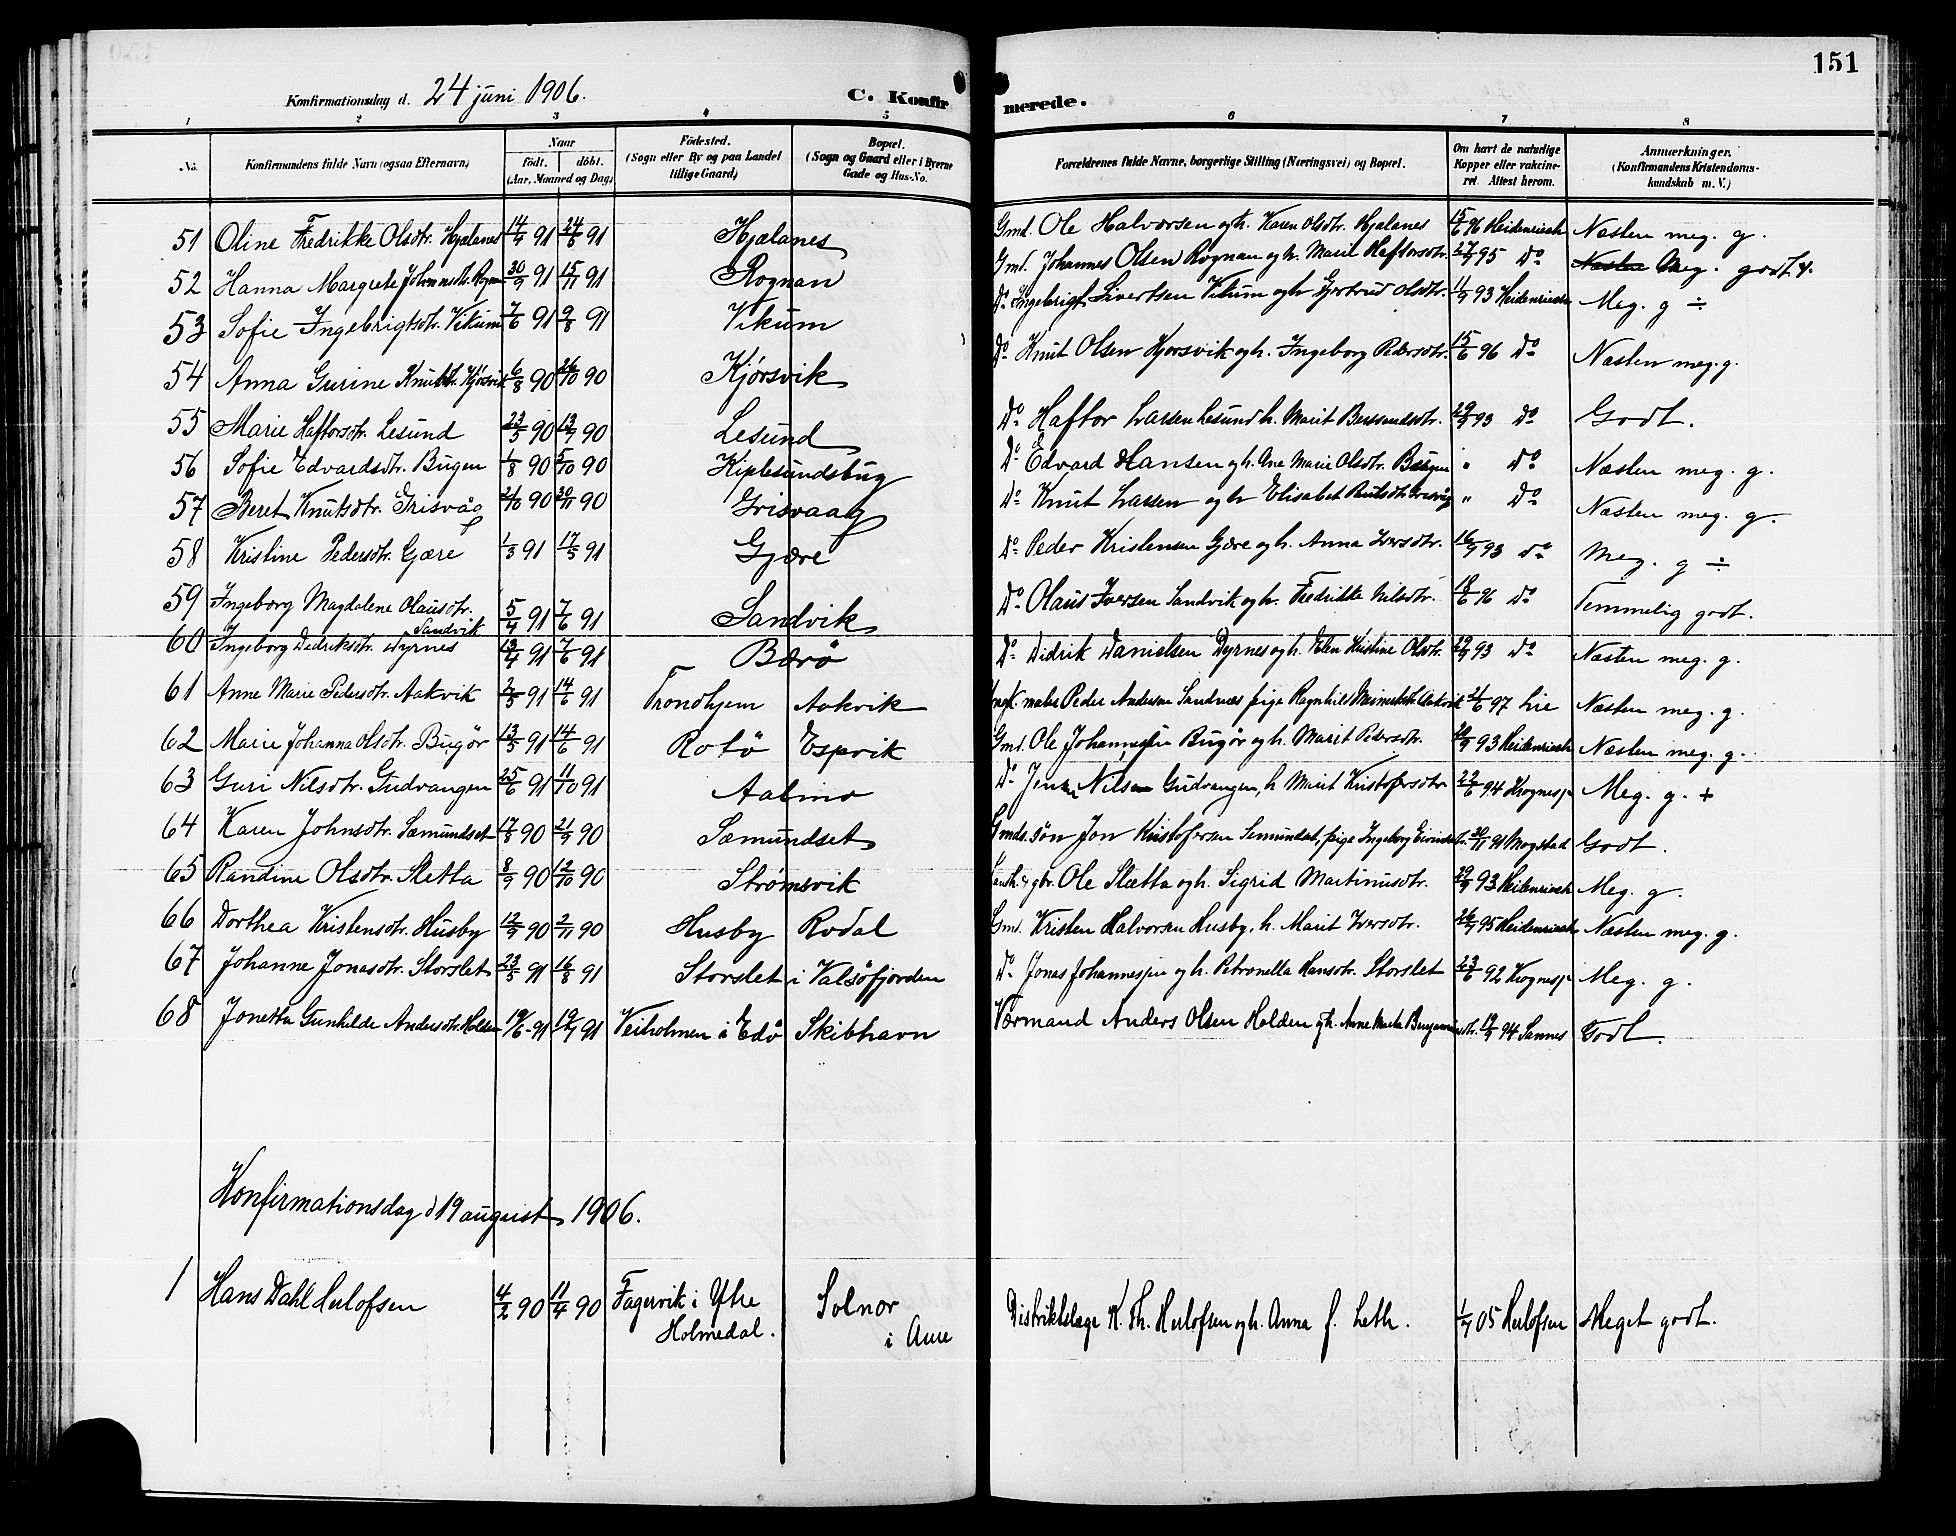 151
Konfirmationsdag d. 24 juni 1906.
C. Konfirmerede.
1 2 3 4 5 6 7 8
No. Konfirmandens fulde Navn (ogsaa Efternavn) Naar födt. döbt. (Aar, Maaned og Dag) Födested. (Sogn eller By og paa Landet tillige Gaard) Bopæl. (Sogn og Gaard eller i Byerne Gade og Hus-No. Forældrenes fulde Navne, borgerlige Stilling (Næringsvei) og Bopæl. Om havt de naturlige Kopper eller vakcineret. Attest herom. Anmærkninger. (Konfirmandens Kristendomskundskab m. V.)
51 Oline Fredrikke Olsdtr. Hjelanes 14/4 91 24/6 91 Hjelanes Gmd. Ole Halvorsen og h. Karen Olsdtr. Hjelanes 15/6 96 Heidenreich Næsten meg. g.
52 Hanna Margrete Johannsdt. Rognan 30/9 91 15/11 91 Rognan Gmd. Johannes Olsen Rognan og h. Marit Haftorsdtr. 27/7 95 Do Næsten Meg. godt.
53 Sofie Ingebrigtsdtr. Vikum 7/6 91 9/8 91 Vikum Do Ingebrigt Sivertsen Vikum og h Gjertrud Olsdtr. 11/9 93 Heidenreich Meg. g ÷
54 Anna Gurine Knutsdtr. Kjörsvik 6/8 90 26/10 90 Kjörsvik Do Knut Olsen Kjörsvik og h. Ingeborg Pedersdtr. 15/6 96 Do Næsten meg. g.
55 Marie Haftorsdtr. Lesund 23/5 90 13/7 90 Lesund Do Haftor Larsen Lesund h. Marit 29/9 93 Do Godt.
56 Sofie Edvardsdtr. Bugen 1/8 90 5/10 90 Kiplesundsbug Do Edvard Hansen og h. Ane Marie Olsdtr. Bugen " Do Næsten meg. g.
57 Beret Knutsdtr. Grisvåg 21/10 90 30/11 90 Grisvaag Do Knut Larsen og h Elisabet Grisvåg " Do Næsten meg. g.
58 Kristine Pedersdtr. Gjære 1/3 91 17/5 91 Gjære Do Peder Kristensen Gjære og h. Anna Iversdtr. 16/9 93 Do Meg. g ÷
59 Ingeborg Magdalene Olausdtr. Sandvik 5/4 91 7/6 91 Sandvik Do Olaus Iversen Sandvik og h. Fredrikke Nilsdtr. 18/6 96 Do Temmelig godt.
60 Ingeborg Dedriksdtr. Dyrnes 13/4 91 7/6 91 Bærö Do Didrik Danielsen Dyrnes og h. Elen Kristine Olsdtr. 29/9 93 Do Næsten meg. g.
61 Anne Marie Pedersdtr. Aakvik 2/5 91 14/6 91 Trondhjem Aakvik Peder Andersen Sandnæs pige Ragnhild Aakvik 21/6 97 Lie Næsten meg. g.
62 Marie Johanna Olsdtr. Bugör 13/5 91 14/6 91 Rotö Espvik Gmd. Ole Johannesen Bugör og h. Marit Pedersdtr. 26/9 93 Heidenreich Næsten meg. g.
63 Guri Nilsdtr. Gudvangen 25/6 91 11/10 91 Aalmo Do Nilsen Gudvangen, h Marit Kristofersdtr 22/6 94 Krognes Meg. g. +
64 Karen Johnsdtr. Sæmundset 17/8 90 21/9 90 Sæmundset Gmds. sön Jon Kristofersen Semundset, pige Ingeborg 91 Mogstad Godt.
65 Randine Olsdtr. Sletta 8/9 90 12/10 90 Strömsvik Ole Sletta og h. Sigrid Martinusdtr. 29/9 93 Heidenreich Meg. g.
66 Dorthea Kristensdtr. Husby 12/9 90 2/11 90 Husby Rodal Gmd. Kristen Halvorsen Husby, h. Marit Iversdtr. 26/7 95 Heidenreich Næsten meg. g.
67 Johanne Jonasdtr. Storslet 23/5 91 16/8 91 Storslet i Valsöfjorden Do Jonas Johannesen og h. Petronella Hansdtr. Storslet 23/6 92 Krognes Meg. g.
68 Jonetta Gunhilde Andersdtr. Holden 19/6 91 19/7 91 Veiholmen i Edö Skibhavn Anders Olsen Holden og h. Anne Marta 94 Sannes Godt.
Konfirmationsdag d 19 august 1906.
1 Hans Dahl Herlofsen 4/2 90 11/4 90 Fagervik i Ytre Holmedal. Solnör i Aure Distriktslæge K. Th. Herlofsen og h. Anna f. Leth. 1/7 05 Herlofsen Meget godt.